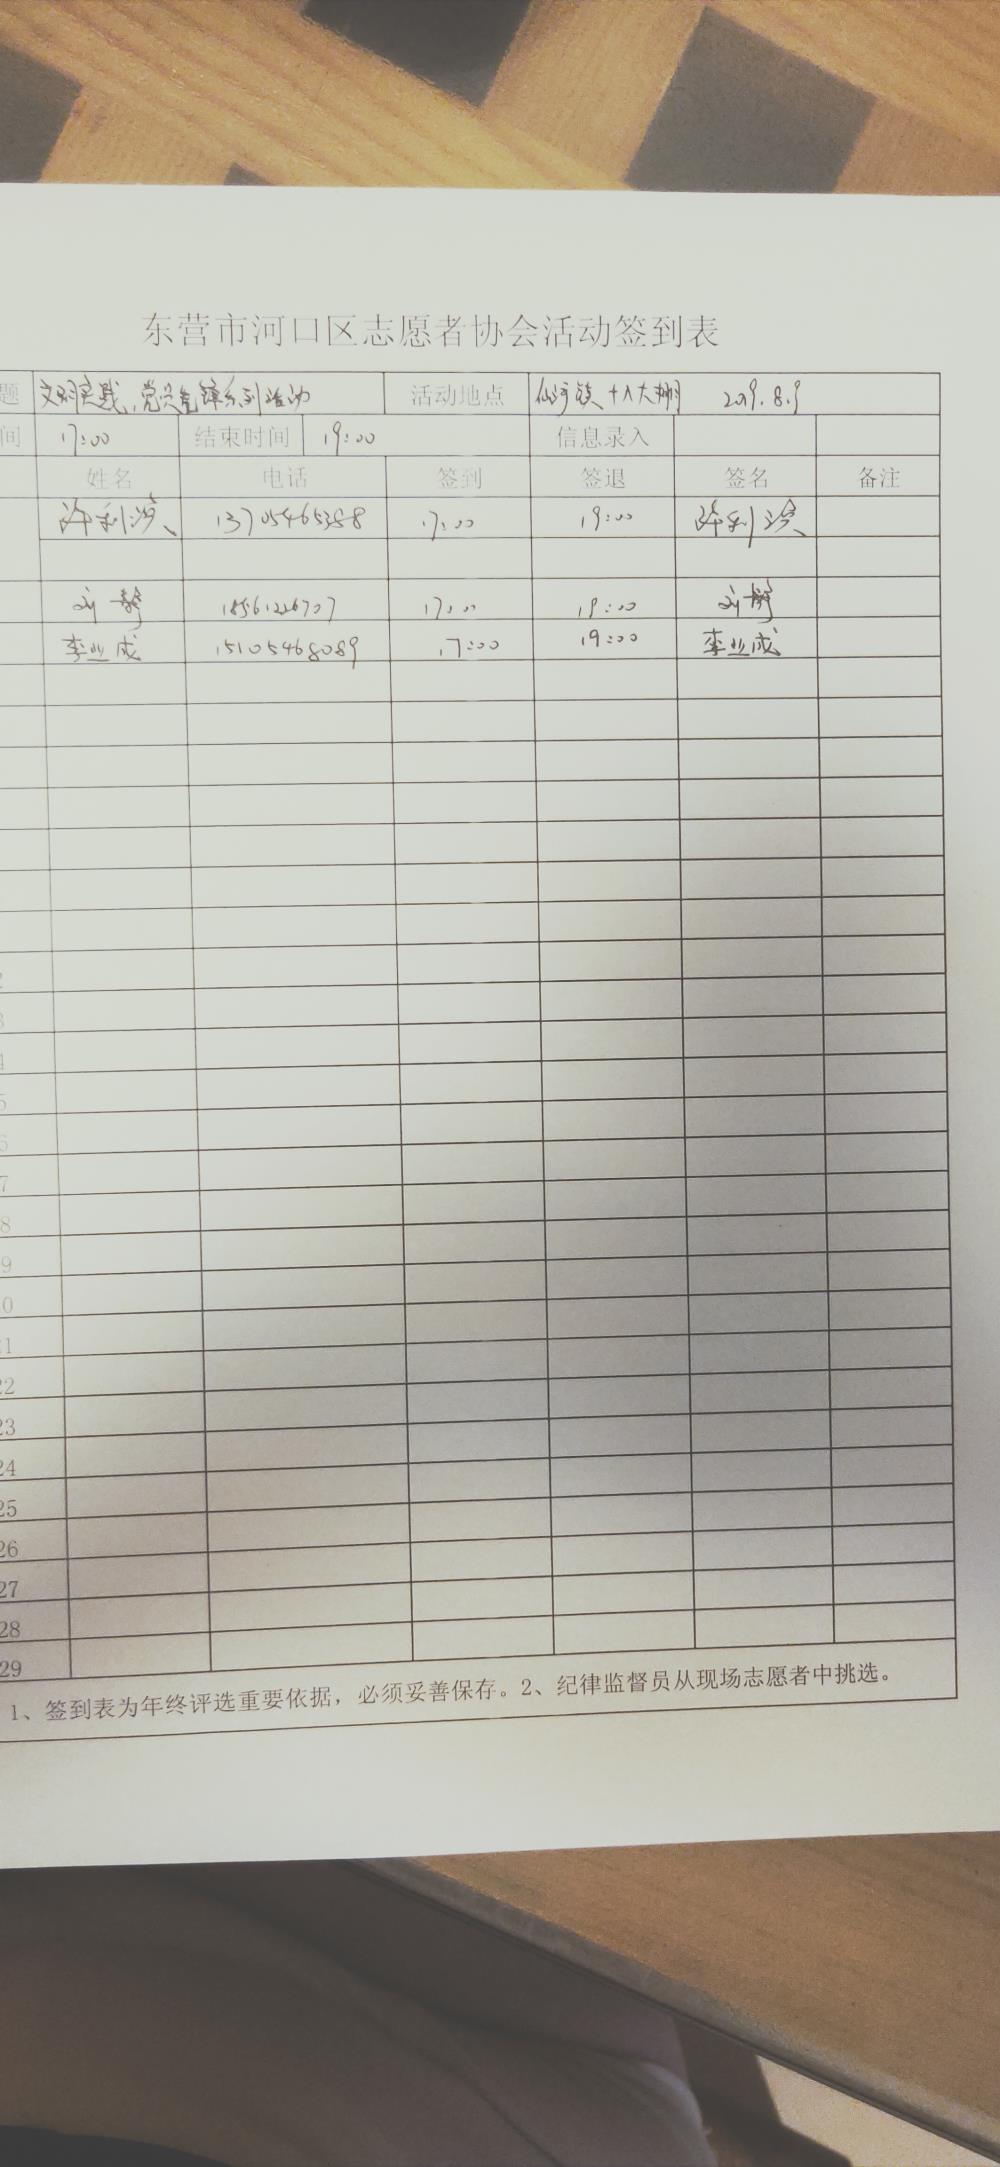 东营市河口区志愿者协会活动签到表
题 文明实践、党员先锋系列活动 活动地点 仙河镇十八大棚 2019.8.9
间 17:00 结束时间 19:00 信息录入
姓名 电话 签到 签退 签名 备注
许利滨 13705465388 17:00 19:00 许利滨
刘静 1856126707 17:00 19:00 刘静
李业成 15105468089 17:00 19:00 李业成
2
3
4
5
6
7
8
9
0
21
22
23
24
25
26
27
28
29
1、签到表为年终评选重要依据，必须妥善保存。2、纪律监督员从现场志愿者中挑选。